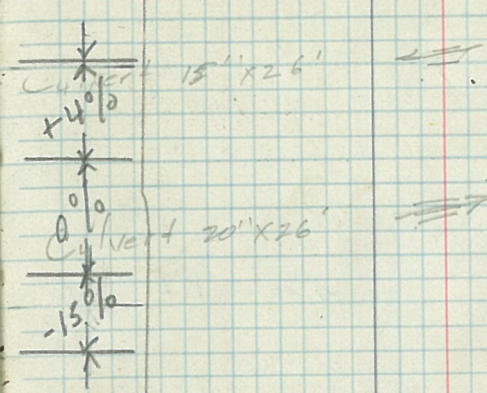 Culvert 15" x 26'
+4%
0%
Culvert 20" x 26'
-15%